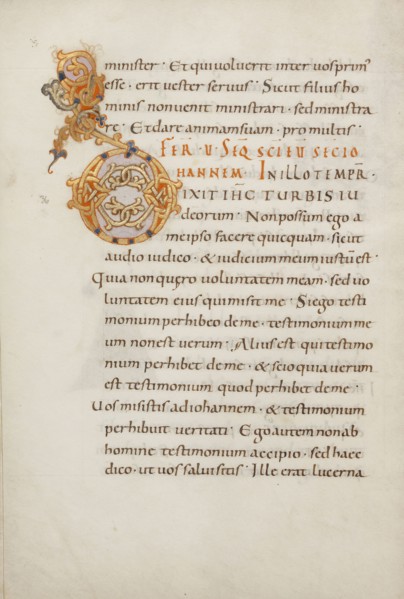 minister · Et qui voluerit inter vos prim'
esse · erit vester servus · Sicut filius ho
minis non venit ministrari · sed ministra
re · Et dare animam suam · pro multis ·
FER · V · SEQ SCI EV SEC IO
HANNEM · IN ILLO TEMPR ·
DIXIT IHC TURBIS IU
deorum · Non possum ego a
me ipso facere quicquam · sicut
audio iudico · & iudicium meum iustu est ·
Quia non quero voluntatem meam · sed vo
luntatem eius qui misit me · Si ego testi
monium perhibeo de me · testimonium me
um non est verum · Alius est qui testimo
nium perhibet de me · & scio quia verum
est testimonium quod perhibet de me ·
Vos misistis ad iohannem · & testimonium
perhibuit veritati · Ego autem non ab
homine testimonium accipio · sed haec
dico · ut vos salvi sitis · Ille erat lucerna